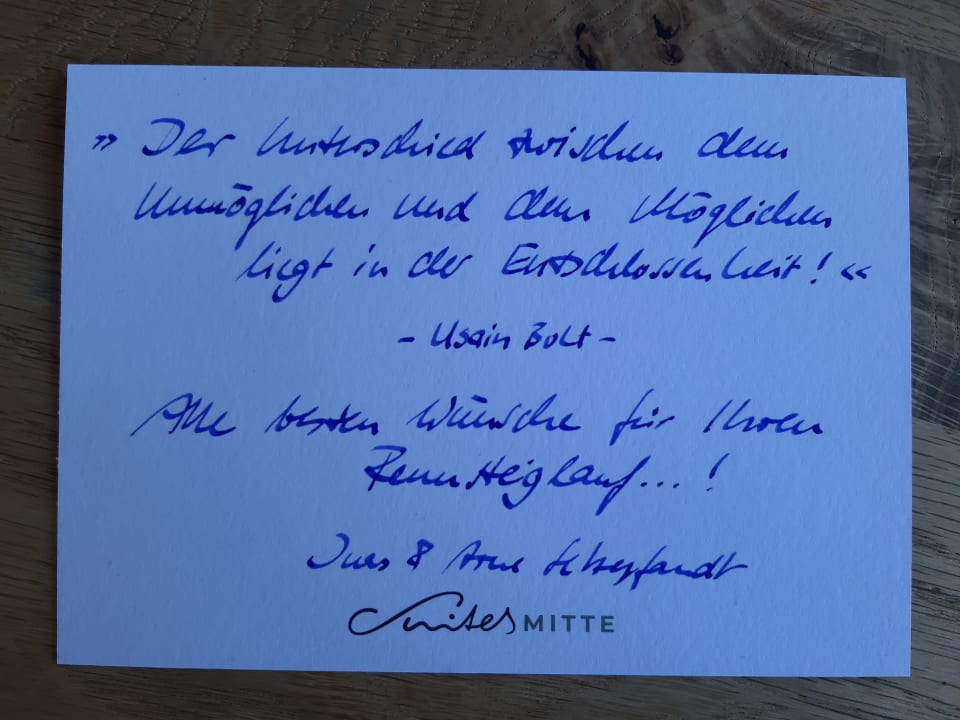 » Der Unterschied zwischen dem
Unmöglichen und dem Möglichen
liegt in der Entschlossenheit! «
- Usain Bolt -
Alle besten Wünsche für Ihren
Rennsteiglauf...!
Ines & Arne
Suites MITTE